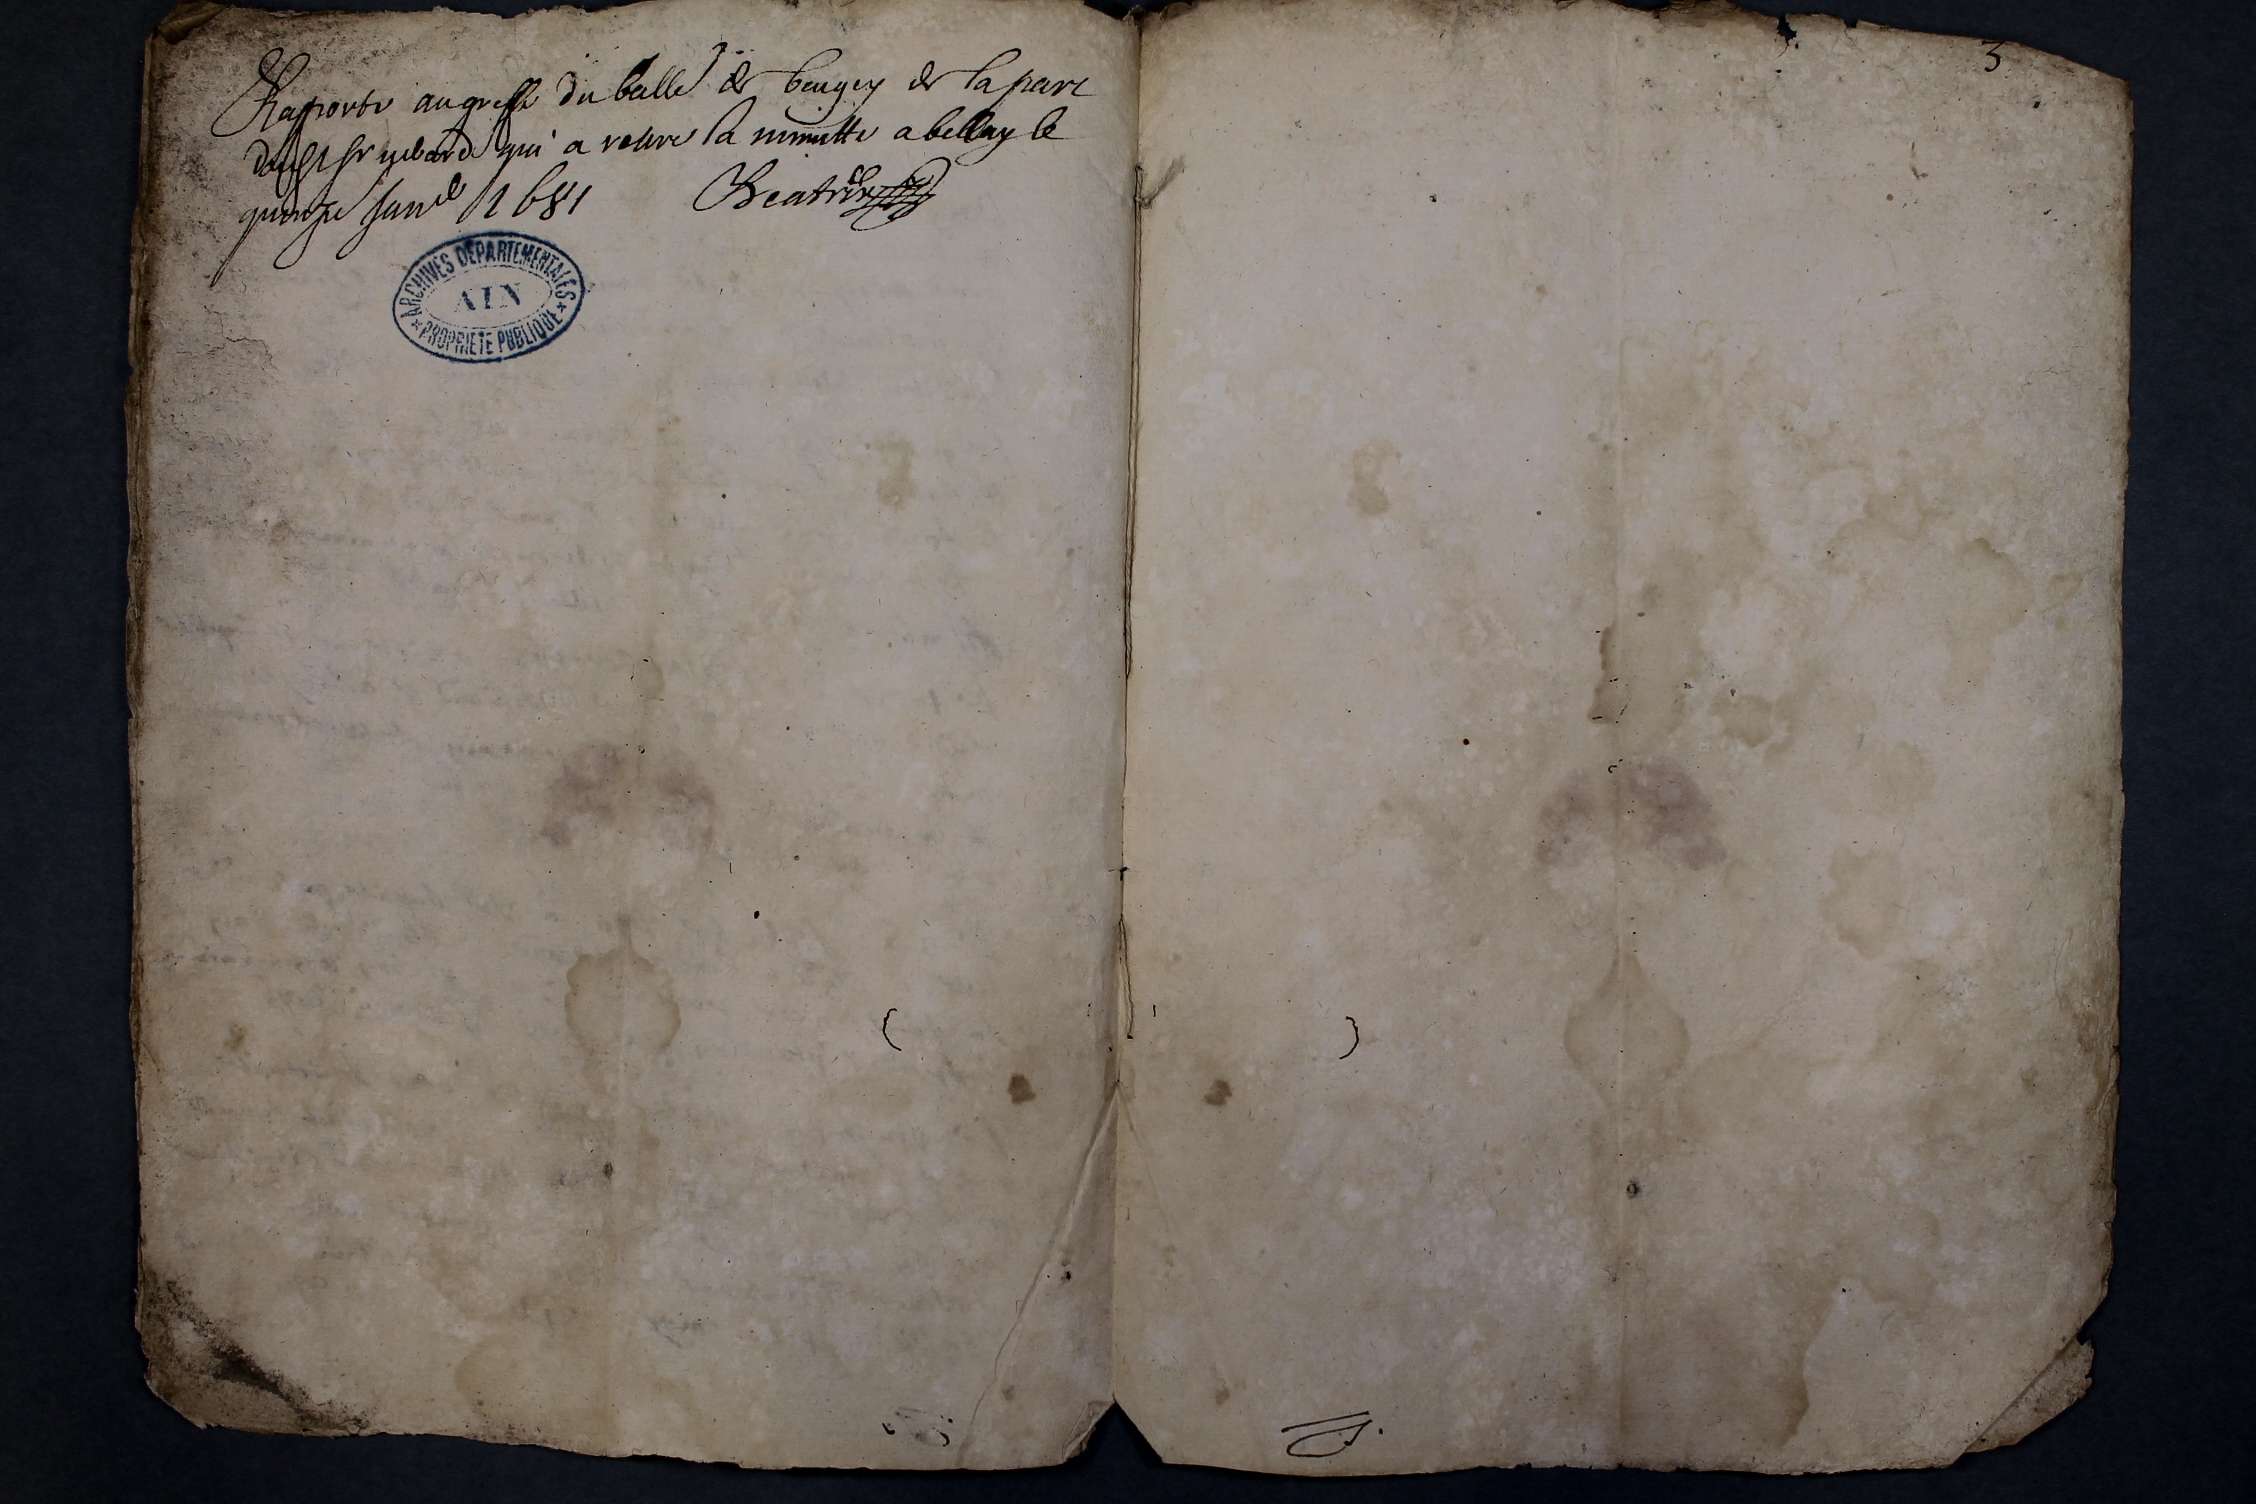 Rapporte au greffe du balle de beugey de la part
dud sr qui a retire la minutte a belley le
quinze janv 1681 Beatrix
ARCHIVES DEPARTEMENTALES
AIN
PROPRIETE PUBLIQUE
3